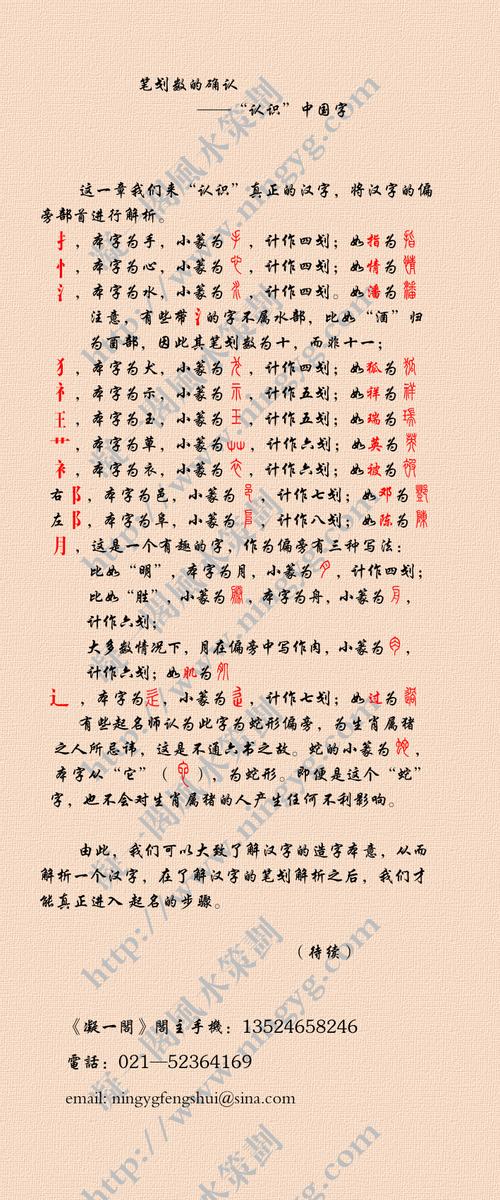 笔划数的确认
——“认识”中国字
这一章我们来“认识”真正的汉字，将汉字的偏
旁部首进行解析。
扌，本字为手，小篆为手，计作四划；如指为指
忄，本字为心，小篆为心，计作四划；如情为情
氵，本字为水，小篆为水，计作四划。如潘为潘
注意，有些带氵的字不属水部，比如“酒”归
为酉部，因此其笔划数为十，而非十一；
犭，本字为犬，小篆为犬，计作四划；如狐为狐
礻，本字为示，小篆为示，计作五划；如祥为祥
王，本字为玉，小篆为王，计作五划；如瑞为瑞
艹，本字为草，小篆为艸，计作六划；如英为英
衤，本字为衣，小篆为衣，计作六划；如被为被
右阝，本字为邑，小篆为邑，计作七划；如邓为鄧
左阝，本字为阜，小篆为𨸏，计作八划；如陈为陳
月，这是一个有趣的字，作为偏旁有三种写法：
比如“明”，本字为月，小篆为月，计作四划；
比如“胜”，小篆为勝，本字为舟，小篆为舟，
计作六划；
大多数情况下，月在偏旁中写作肉，小篆为肉，
计作六划；如肌为肌
辶，本字为辵，小篆为辵，计作七划；如过为過
有些起名师认为此字为蛇形偏旁，为生肖属猪
之人所忌讳，这是不通六书之故。蛇的小篆为蛇，
本字从“它”（它），为蛇形。即便是这个“蛇”
字，也不会对生肖属猪的人产生任何不利影响。
由此，我们可以大致了解汉字的造字本意，从而
解析一个汉字，在了解汉字的笔划解析之后，我们才
能真正进入 起名的步骤。
（待续）
《凝一閣》閣主手機：13524658246
電話：021—52364169
email: ningygfengshui@sina.com
凝一閣風水策劃
http://www.ningyg.com
凝一閣風水策劃
http://www.ningyg.com
凝一閣風水策劃
http://www.ningyg.com
凝一閣風水策劃
http://www.ningyg.com